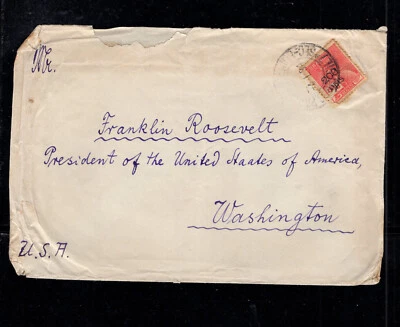 Mr.
Franklin Roosevelt
President of the United Staates of America,
Washington
U.S.A.